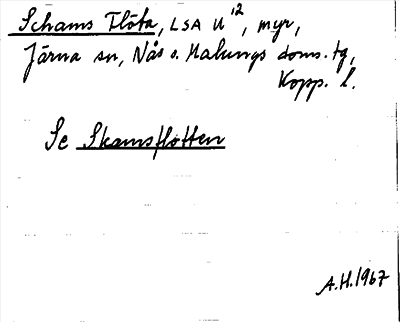 Schams Flöta, LSA U¹², myr,
Järna sn, Nås o. Malungs doms. tg,
Kopp. l.
Se Skamsflotten
A.H. 1967